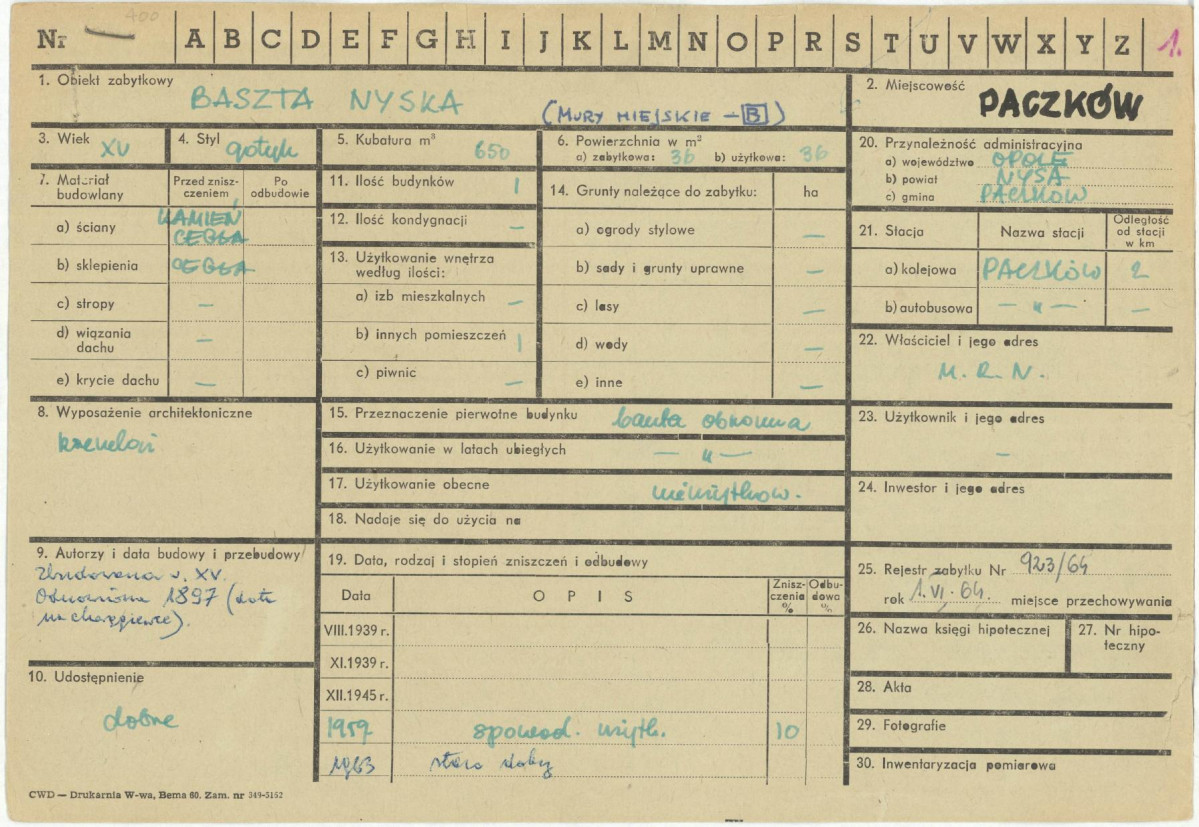 400
Nr A B C D E F G H I J K L M N O P R S T U V W X Y Z 1.
1. Obiekt zabytkowy
BASZTA NYSKA
(MURY MIEJSKIE – B)
2. Miejscowość
PACZKÓW
3. Wiek XV
4. Styl gotyk
5. Kubatura m³ 650
6. Powierzchnia w m²
a) zabytkowa: 36 b) użytkowa: 36
7. Materiał budowlany
Przed zniszczeniem
Po odbudowie
a) ściany KAMIEŃ
CEGŁA
b) sklepienia CEGŁA
c) stropy –
d) wiązania dachu –
e) krycie dachu –
8. Wyposażenie architektoniczne
9. Autorzy i data budowy i przebudowy
Zbudowana w. XV.
Odnowiona 1897 (data
na chorągiewce).
10. Udostępnienie
dobre
11. Ilość budynków 1
12. Ilość kondygnacji –
13. Użytkowanie wnętrza
według ilości:
a) izb mieszkalnych –
b) innych pomieszczeń 1
c) piwnic –
14. Grunty należące do zabytku: ha
a) ogrody stylowe –
b) sady i grunty uprawne –
c) lasy –
d) wody –
e) inne –
15. Przeznaczenie pierwotne budynku baszta obronna
16. Użytkowanie w latach ubiegłych – " –
17. Użytkowanie obecne nieużytkow.
18. Nadaje się do użycia na
19. Data, rodzaj i stopień zniszczeń i odbudowy
Data OPIS Zniszczenia % Odbudowa %
VIII.1939 r.
XI.1939 r.
XII.1945 r.
1959 spowod. użytk. 10
1963 stan dobry
20. Przynależność administracyjna
a) województwo OPOLE
b) powiat NYSA
c) gmina PACZKÓW
21. Stacja Nazwa stacji Odległość od stacji w km
a) kolejowa PACZKÓW 2
b) autobusowa – " – –
22. Właściciel i jego adres
M. R. N.
23. Użytkownik i jego adres
–
24. Inwestor i jego adres
25. Rejestr zabytku Nr 923/64
rok 1. VI. 64. miejsce przechowywania
26. Nazwa księgi hipotecznej
27. Nr hipoteczny
28. Akta
29. Fotografie
30. Inwentaryzacja pomiarowa
CWD — Drukarnia W-wa, Bema 60. Zam. nr 349-5152